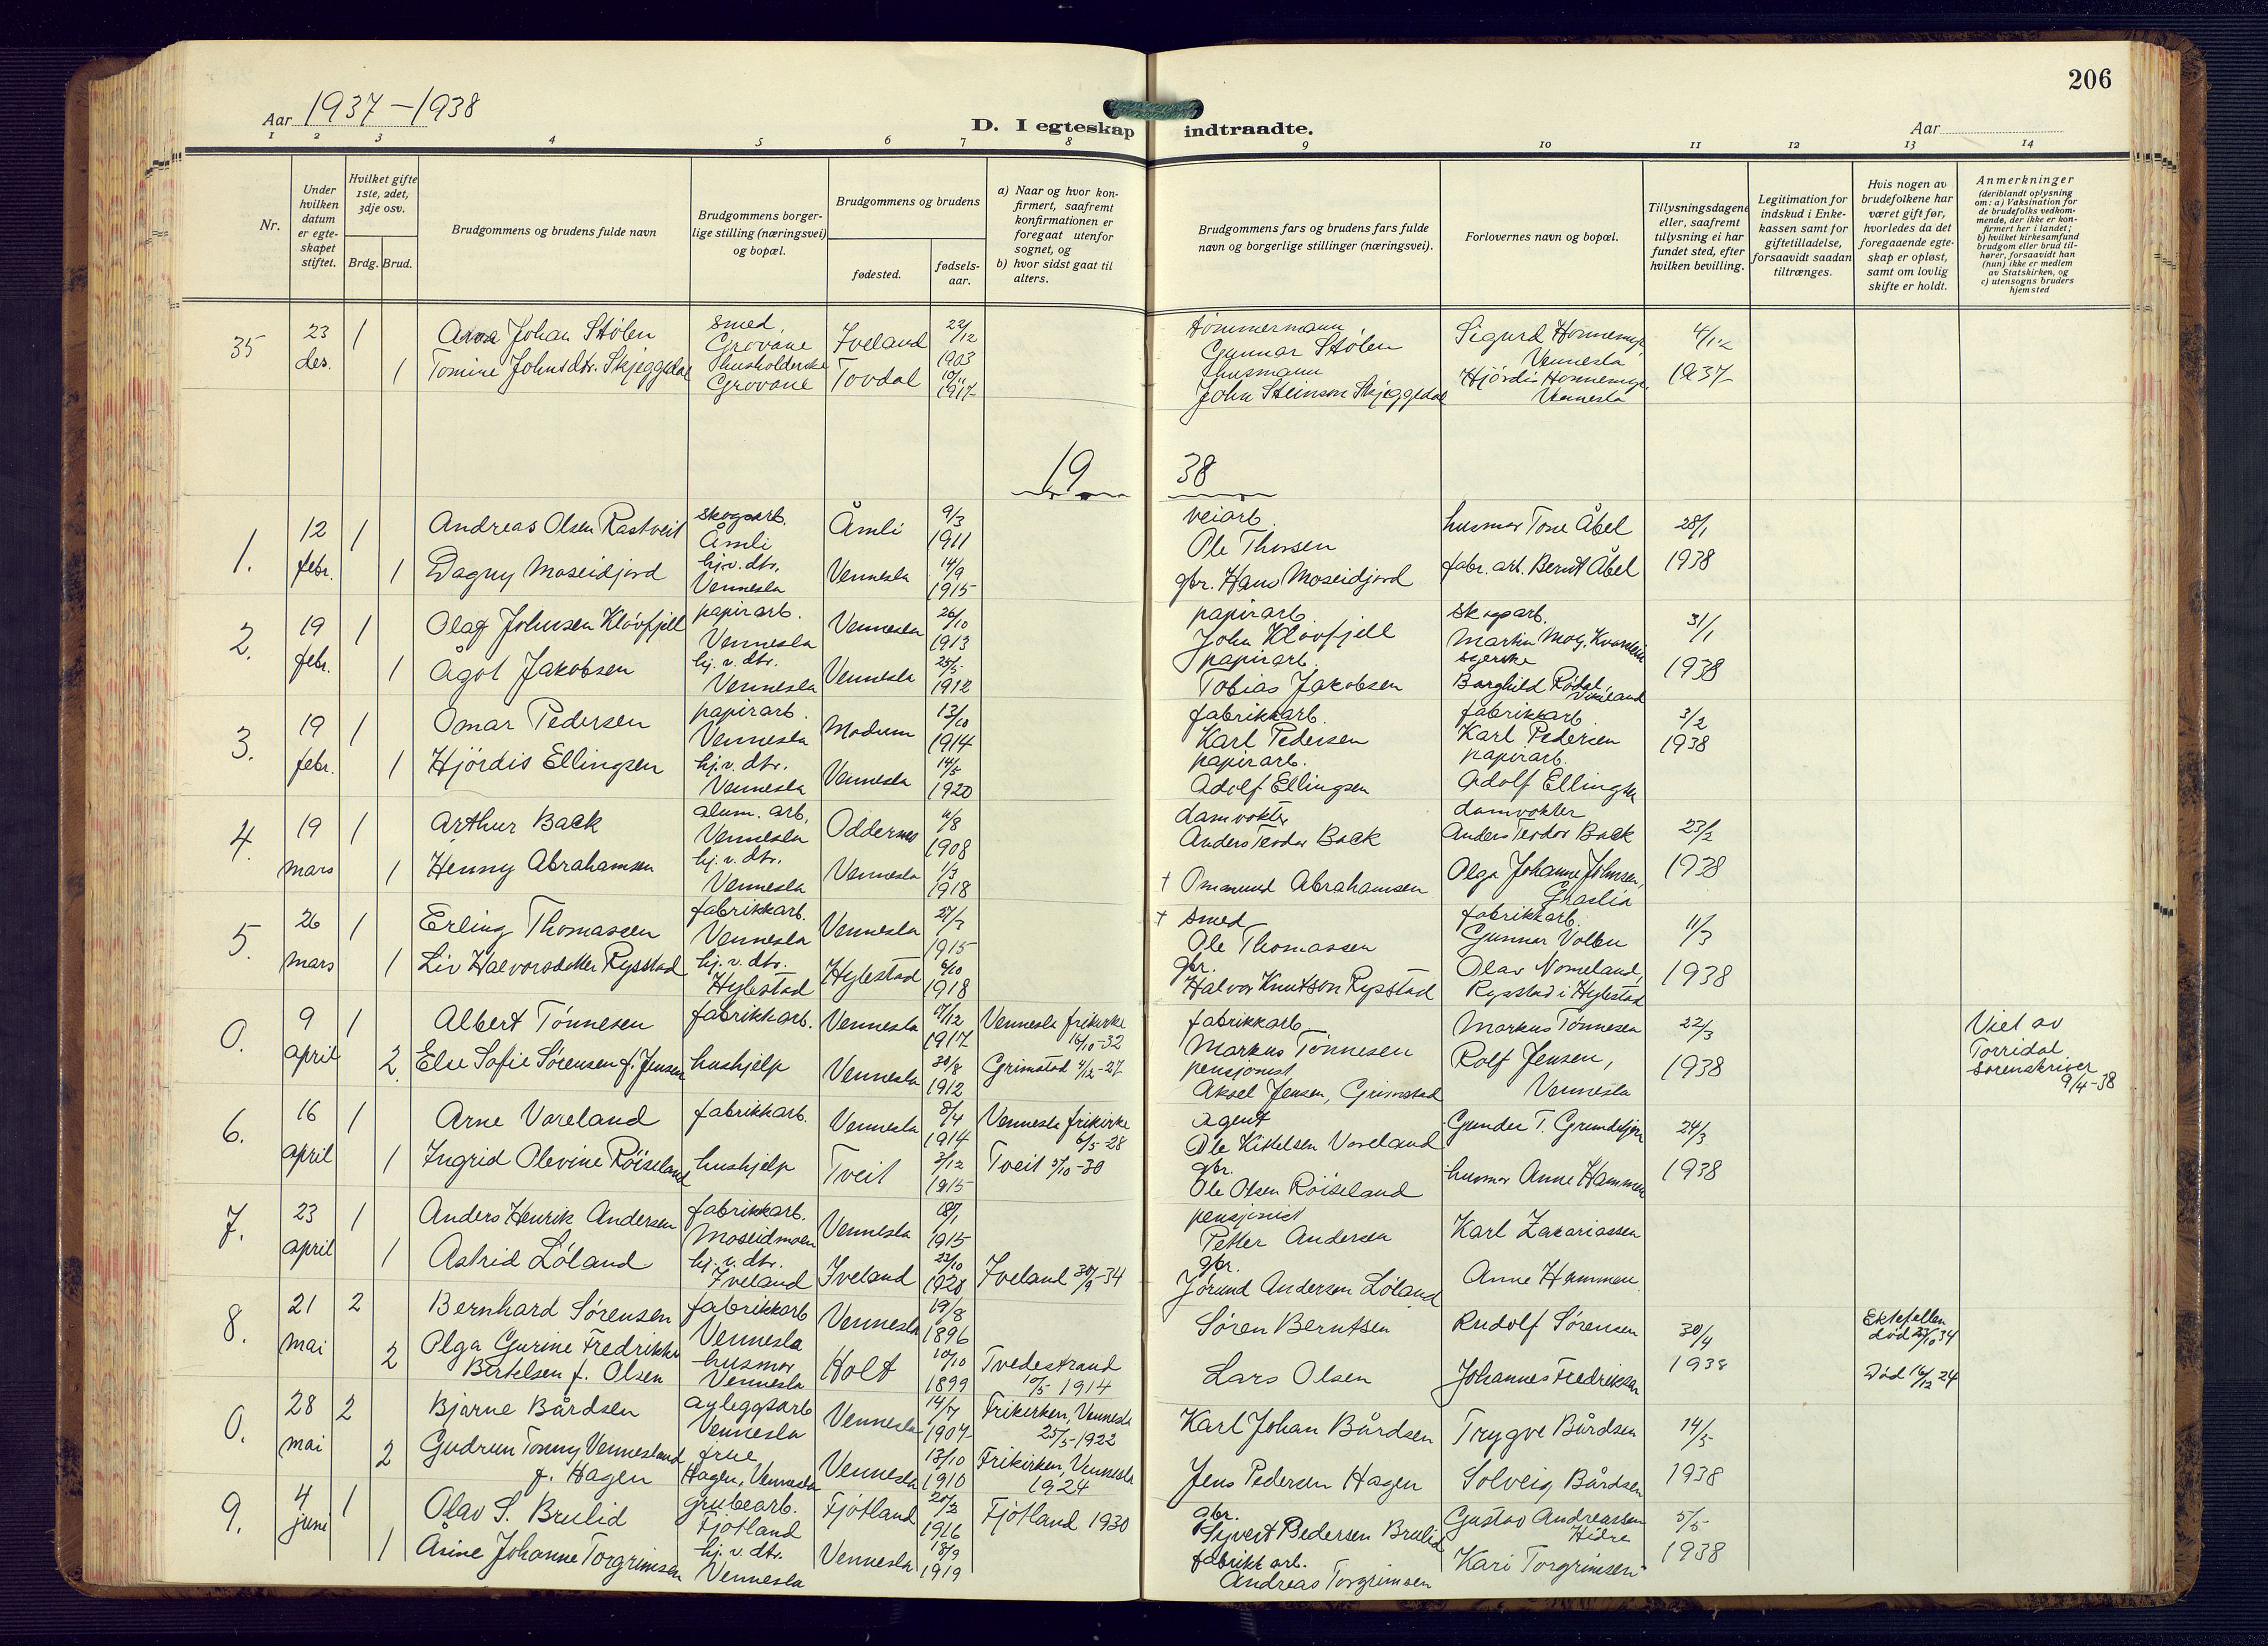 206
Aar 1937-1938
D. I egteskap indtraadte.
Aar
1 2 3 4 5 6 7 8 9 10 11 12 13 14
Nr.
Under hvilken datum er egteskapet stiftet.
Hvilket gifte 1ste, 2det, 3dje osv.
Brdg. Brud.
Brudgommens og brudens fulde navn
Brudgommens borgerlige stilling (næringsvei) og bopæl.
Brudgommens og brudens
fødested.
fødselsaar.
a) Naar og hvor konfirmert, saafremt konfirmationen er foregaat utenfor sognet, og
b) hvor sidst gaat til alters.
Brudgommens fars og brudens fars fulde navn og borgerlige stillinger (næringsvei).
Forlovernes navn og bopæl.
Tillysningsdagene eller, saafremt tillysning ei har fundet sted, efter hvilken bevilling.
Legitimation for indskud i Enkekassen samt for giftetilladelse, forsaavidt saadan tiltrænges.
Hvis nogen av brudefolkene har været gift før, hvorledes da det foregaaende egteskap er opløst, samt om lovlig skifte er holdt.
Anmerkninger (deriblandt oplysning om: a) Vaksination for de brudefolks vedkommende, der ikke er konfirmert her i landet; b) hvilket kirkesamfund brudgom eller brud tilhører, forsaavidt han (hun) ikke er medlem av Statskirken, og c) utensogns bruders hjemsted
35 23 des. 1 Johan Stølen smed, Grovane Iveland 22/12 1903 tømmermann, Gunnar Stølen Sigurd Vennesla 4/12
1 Tomine Johnsdtr. Skjeggedal husholderske Grovane Tovdal husmann John Steinson Skjeggedal Hjördis Vennesla 1937
1938
1. 12 febr. 1 Andreas Olsen Rastveit skogsarb. Åmli Åmli 9/3 1911 veiarb. Ole Thorsen husmor Tone Åbel 28/1
1 Dagny Moseidjord hj.v.dtr. Vennesla Vennesla 14/9 1915 gbr. Hans Moseidjord fabr. arb. Bernt Åbel 1938
2. 19 febr. 1 Olag Johnsen Klövfjell papirarb. Vennesla Vennesla 26/10 1913 papirarb. John Klövfjell skogsarb. Martin Moy, 31/1
1 Ågot Jakobsen hj.v.dtr. Vennesla Vennesla 25/5 1912 papirarb. Tobias Jakobsen syerske Borghild Rödal, Vikeland 1938
3. 19 febr. 1 Omar Pedersen papirarb. Vennesla Modum 13/10 1914 fabrikkarb. Karl Pedersen fabrikkarb. Karl Pedersen 3/2
1 Hjördis Ellingsen hj.v.dtr. Vennesla Vennesla 14/5 1920 papirarb. Adolf Ellingsen papirarb. Adolf Ellingsen 1938
4. 19 mars 1 Arthur Back alum. arb. Vennesla Oddernes 11/8 1908 damvokter Anders Teodor Back damvokter Anders Teodor Back 23/2
1 Henny Abrahamsen hj.v.dtr. Vennesla Vennesla 1/3 1918 † Ommund Abrahamsen Olga Johanne Johnsen, Graslia 1938
5. 26 mars 1 Erling Thomassen fabrikkarb. Vennesla Vennesla 1915 † smed Ole Thomassen fabrikkarb. Gunnar Vollen 11/3
1 Liv Halvorsdotter Rysstad hj.v.dtr. Hylestad Hylestad 6/10 1918 gbr. Halvor Knutson Rysstad Olav Nomeland, Rysstad i Hylestad 1938
0. 9 april 1 Albert Tönnesen fabrikkarb. Vennesla 1917 Vennesla frikirke 16/10-32 fabrikkarb. Markus Tönnesen Markus Tönnesen 22/3 Viet av Torridal sorenskriver 9/4-38
2. Else Sofie Sörensen f. Jensen hushjelp Vennesla 30/8 1912 Grimstad 4/12-27 pensjonist Aksel Jensen, Grimstad Rolf Jensen, Vennesla 1938
6. 16 april 1 Arne Vareland fabrikkarb. Vennesla 8/4 1914 Vennesla frikirke 6/5-28 agent Ole Kittelsen Vareland Gunder T. 24/3
1 Ingrid Olevine Röiseland hushjelp Tveit 3/12 1915 Tveit 5/10-30 gbr. Ole Olsen Röiseland husmor Anne Hammen 1938
7. 23 april 1 Anders Henrik Andersen fabrikkarb. Moseidmoen Vennesla 1915 pensjonist Petter Andersen Karl Zakariassen
1 Astrid Löland hj.v.dtr. Iveland Iveland 23/10 1920 Iveland 30/9-34 gbr. Jörund Andersen Löland Anne Hammen
8. 21 mai 2 Bernhard Sörensen fabrikkarb Vennesla Vennesla 19/8 1896 Sören Berntsen Rudolf Sörensen 30/4 Ektefellen död 23/10 34
2 Olga Gurine Fredrikke Bertelsen f. Olsen husmor Vennesla Holt 10/10 1899 Tvedestrand 10/5 1914 Lars Olsen Johannes Fredriksen 1938 Död 16/12 24
0. 28 mai 2 Bjarne Bårdsen avleggsarb Vennesla Vennesla 14/7 1907 Frikirken, Vennesla 25/5-1922 Karl Johan Bårdsen Trygve Bårdsen 14/5
2 Gudrun Tonny Vennesland f. Hagen frue Hagen, Vennesla Vennesla 13/10 1910 Frikirken, Vennesla 1924 Jens Pedersen Hagen Solveig Bårdsen 1938
9. 4 juni 1 Olav S. Brulid grubearb. Fjotland Fjotland 1916 Fjotland 1930 gbr. Syvert Pedersen Brulid Gustav Andreassen Hidre 5/5
1 Åsine Johanne Torgrimsen hj.v.dtr. Vennesla Vennesla 18/9 1919 fabrikkarb. Andreas Torgrimsen Kari Torgrimsen 1938